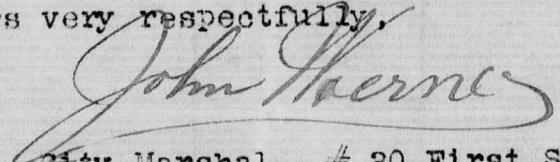 s very respectfully,
John
City Marshal # 20 First S